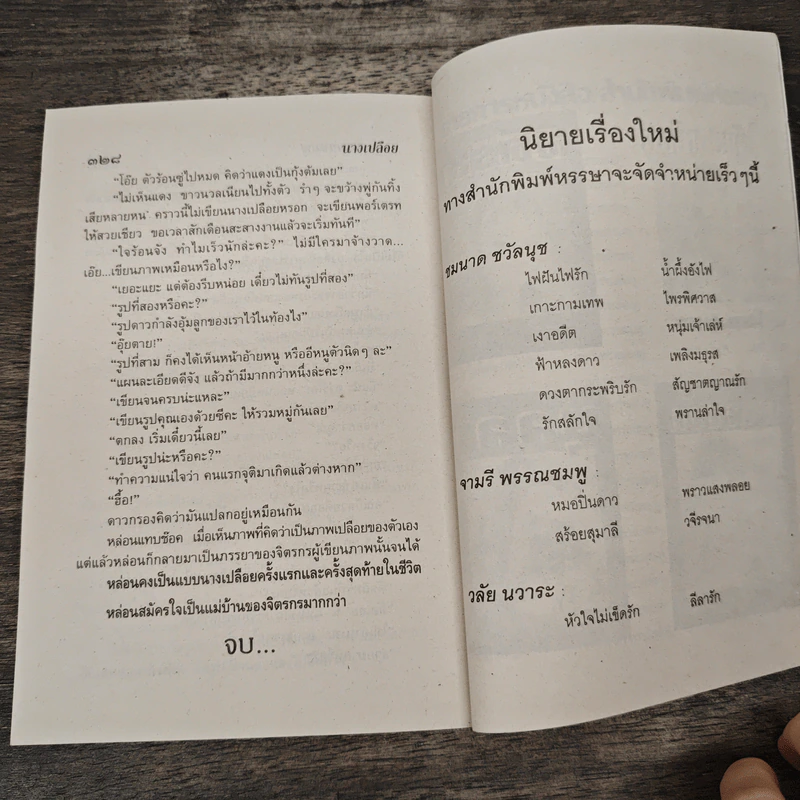 ๓๒๘
นางเปลือย
“โอ๊ย ตัวร้อนซู่ไปหมด คิดว่าแดงเป็นกุ้งต้มเลย”
“ไม่เห็นแดง ขาวนวลเนียนไปทั้งตัว ร่ำๆ จะขว้างพู่กันทิ้ง
เสียหลายหน’ คราวนี้ไม่เขียนนางเปลือยหรอก จะเขียนพอร์เตรท
ให้สวยเชียว ขอเวลาสักเดือนสะสางงานแล้วจะเริ่มทันที”
“ใจร้อนจัง ทำไมเร็วนักล่ะคะ?” ไม่มีใครมาจ้างวาด...
เอ๊ย...เขียนภาพเหมือนหรือไง?”
“เยอะแยะ แต่ต้องรีบหน่อย เดี๋ยวไม่ทันรูปที่สอง”
“รูปที่สองหรือคะ?”
“รูปดาวกำลังอุ้มลูกของเราไว้ในท้องไง”
“อุ๊ยตาย!”
“รูปที่สาม ก็คงได้เห็นหน้าอ้ายหนู หรืออีหนูตัวนิดๆ ละ”
“แผนละเอียดดีจัง แล้วถ้ามีมากกว่าหนึ่งล่ะคะ?”
“เขียนจนครบน่ะแหละ”
“เขียนรูปคุณเองด้วยซีคะ ให้รวมหมู่กันเลย”
“ตกลง เริ่มเดี๋ยวนี้เลย”
“เขียนรูปน่ะหรือคะ?”
“ทำความแน่ใจว่า คนแรกจุติมาเกิดแล้วต่างหาก”
“ฮื้อ!”
ดาวกรองคิดว่ามันแปลกอยู่เหมือนกัน
หล่อนแทบช็อค เมื่อเห็นภาพที่คิดว่าเป็นภาพเปลือยของตัวเอง
แต่แล้วหล่อนก็กลายมาเป็นภรรยาของจิตรกรผู้เขียนภาพนั้นจนได้
หล่อนคงเป็นแบบนางเปลือยครั้งแรกและครั้งสุดท้ายในชีวิต
หล่อนสมัครใจเป็นแม่บ้านของจิตรกรมากกว่า
จบ...
นิยายเรื่องใหม่
ทางสำนักพิมพ์หรรษาจะจัดจำหน่ายเร็วๆนี้
ชมนาด ชวัลนุช :
ไฟฝันไฟรัก น้ำผึ้งยังไฟ
เกาะกามเทพ ไพรพิศวาส
เงาอดีต หนุ่มเจ้าเล่ห์
ฟ้าหลงดาว เพลิงมธุรส
ดวงตากระพริบรัก สัญชาตญาณรัก
รักสลักใจ พรานล่าใจ
จามรี พรรณชมพู :
หมอปิ่นดาว พราวแสงพลอย
สร้อยสุมาลี วจีรจนา
วลัย นวาระ :
หัวใจไม่เข็ดรัก ลีลารัก